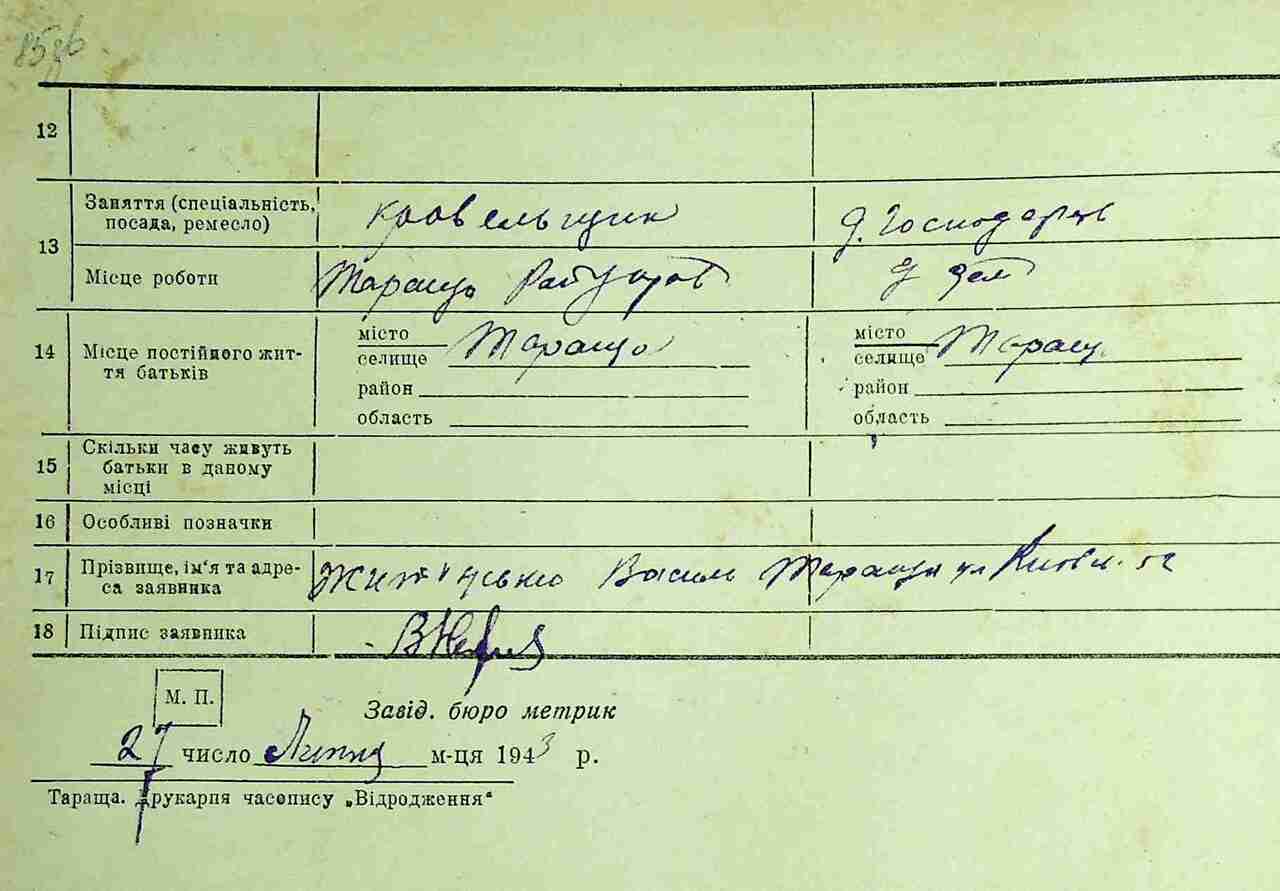 12
Заняття (спеціальність,
посада, ремесло)
кровельщик
Д. Господарць
13
Місце роботи
Тараща
14
Місце постійного жит-
тя батьків
місто
селище Тараща
район
область
місто
селище Таращ
район
область
15
Скільки часу живуть
батьки в даному
місці
16 Особливі позначки
17
Прізвище, ім'я та адре-
са заявника
Василь Тараща ул
18 Підпис заявника
М. П.
Завід. бюро метрик
27 число Липня м-ця 1943 р.
Тараща. Друкарня часопису „Відродження“